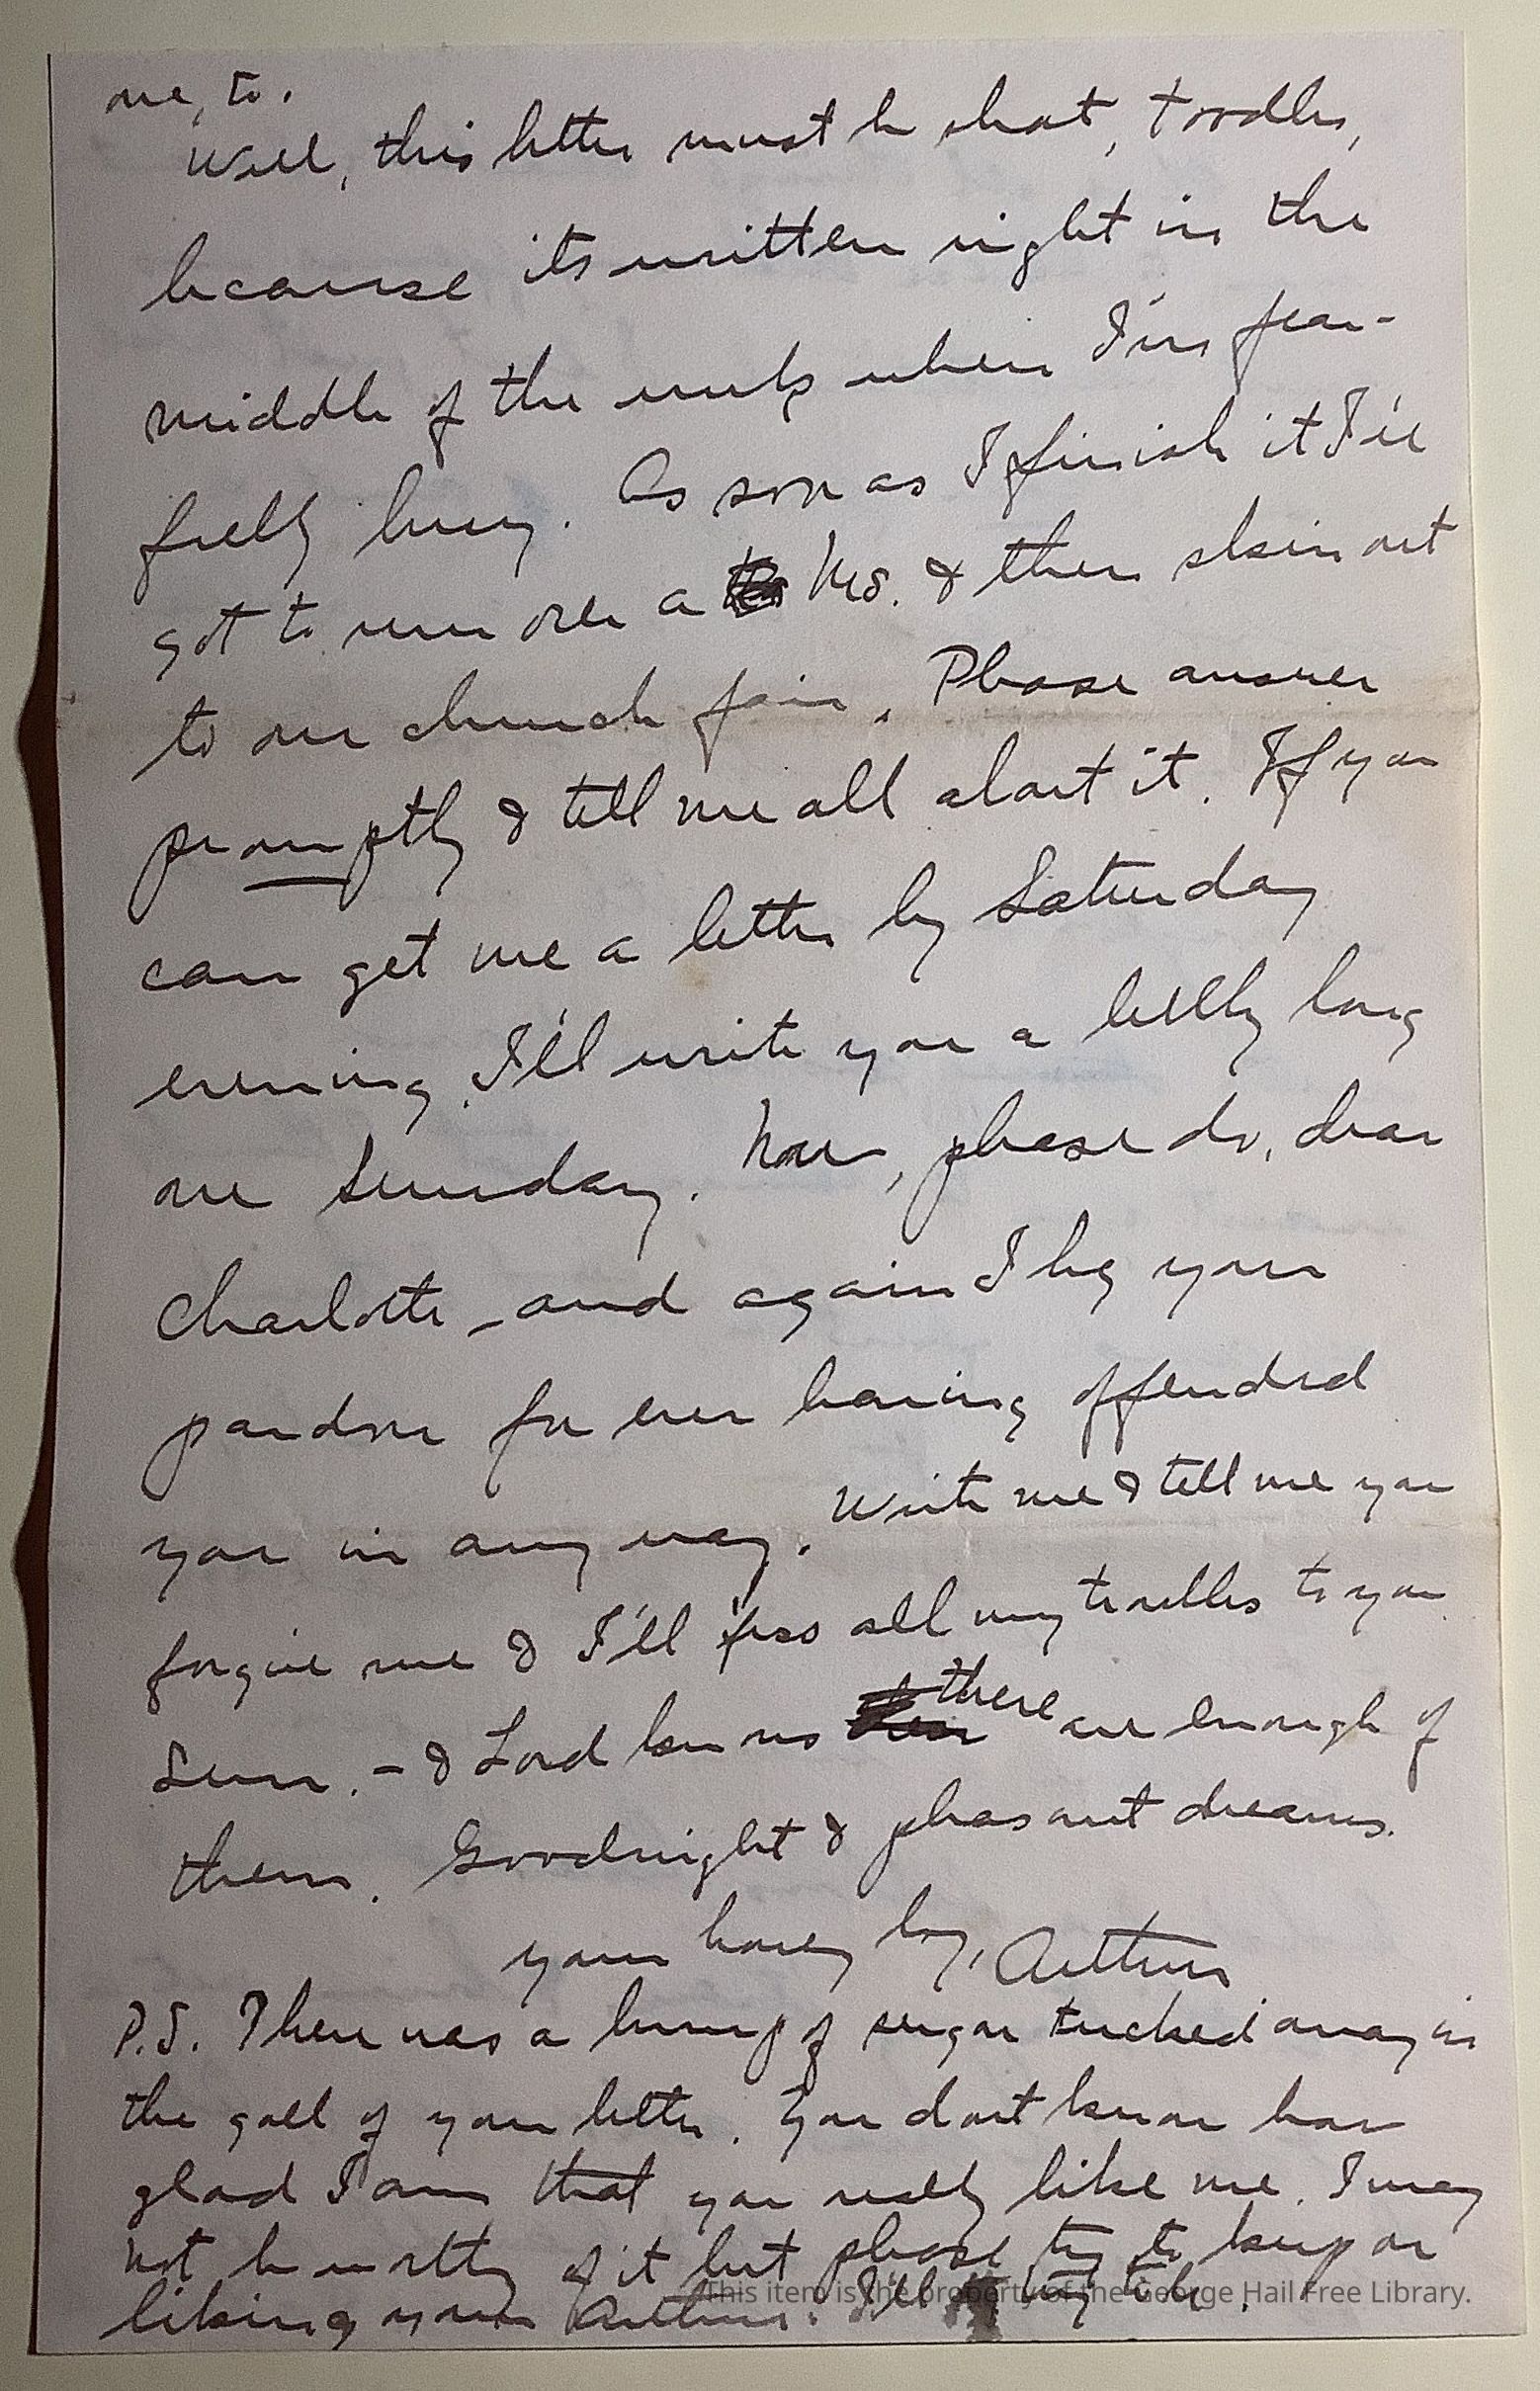 one, to.
Well, this letter must be short, Toodles,
because its written right in the
middle of the week when I'm fear-
fully busy. As soon as I finish it I've
got to run over a Ms. & then skin out
to our church fair. Please answer
promptly & tell me all about it. If you
can get me a letter by Saturday
evening I'll write you a bully long
one Sunday. Now, please do, dear
Charlotte – and again I beg your
pardon for ever having offended
you in any way. Write me & tell me you
forgive me & I'll 'fess all my troubles to you
Sun. – & Lord knows there are enough of
them. Goodnight & pleasant dreams.
your honey boy, Arthur
P.S. There was a lump of sugar tucked away in
the gall of your letter. You dont know how
glad I am that you really like me. I may
not be worthy of it but please try to keep on
liking your Arthur. I'll try to be.
This item is the property of the George Hail Free Library.